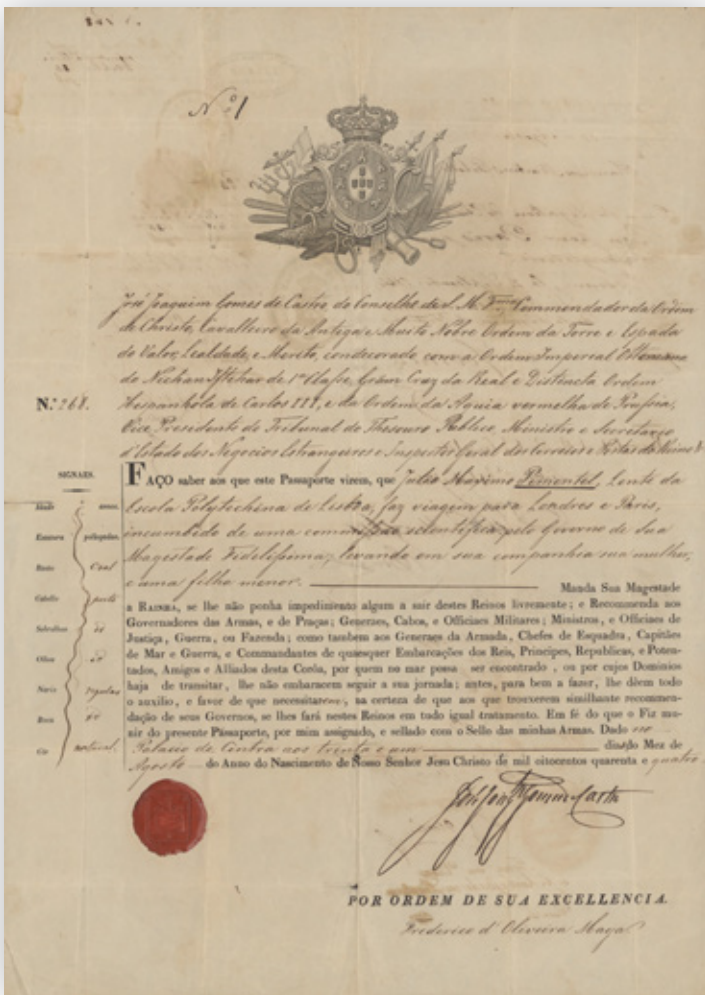 Nº 1
José Joaquim Gomes de Castro, do Conselho de S. M. F.ma, Commendador da Ordem
de Christo, Cavalleiro da Antiga e Muito Nobre Ordem da Torre e Espada
do Valor, Lealdade, e Merito, condecorado com a Ordem Imperial Ottomana
do Nichan Iftihar de 1ª Classe, Gram Cruz da Real e Distincta Ordem
Hespanhola de Carlos III, e da Ordem da Aguia vermelha de Prussia,
Vice Presidente do Tribunal do Thesouro Publico, Ministro e Secretario
d'Estado dos Negocios Estrangeiros e Inspector Geral dos Correios e Postas do Reino &
N.º 268.
SIGNAES.
Idade annos.
Estatura pollegadas.
Rosto Oval
Cabello preto
Sobrolhos do
Olhos do
Nariz regular
Boca do
Côr natural.
FAÇO saber aos que este Passaporte virem, que Julio Maximo Pimentel, Lente da
Escola Polytechnica de Lisboa, faz viagem para Londres e Paris,
incumbido de uma commissão scientifica pelo Governo de Sua
Magestade Fidelissima, levando em sua companhia sua mulher,
e uma filha menor. Manda Sua Magestade
a RAINHA, se lhe não ponha impedimento algum a sair destes Reinos livremente; e Recommenda aos
Governadores das Armas, e de Praças; Generaes, Cabos, e Officiaes Militares; Ministros, e Officiaes de
Justiça, Guerra, ou Fazenda; como tambem aos Generaes da Armada, Chefes de Esquadra, Capitães
de Mar e Guerra, e Commandantes de quaesquer Embarcações dos Reis, Principes, Republicas, e Poten-
tados, Amigos e Alliados desta Corôa, por quem no mar possa ser encontrado, ou por cujos Dominios
haja de transitar, lhe não embaracem seguir a sua jornada; antes, para bem a fazer, lhe dêem todo
o auxilio, e favor de que necessitarem, na certeza de que aos que trouxerem similhante recommen-
dação de seus Governos, se lhes fará nestes Reinos em tudo igual tratamento. Em fé do que o Fiz mu-
nir do presente Passaporte, por mim assignado, e sellado com o Sello das minhas Armas. Dado no
Palacio de Cintra aos trinta e um dias do Mez de
Agosto do Anno do Nascimento de Nosso Senhor Jesu Christo de mil oitocentos quarenta e quatro.
José Joaq.m Gomes de Castro
POR ORDEM DE SUA EXCELLENCIA.
Frederico d'Oliveira Maya